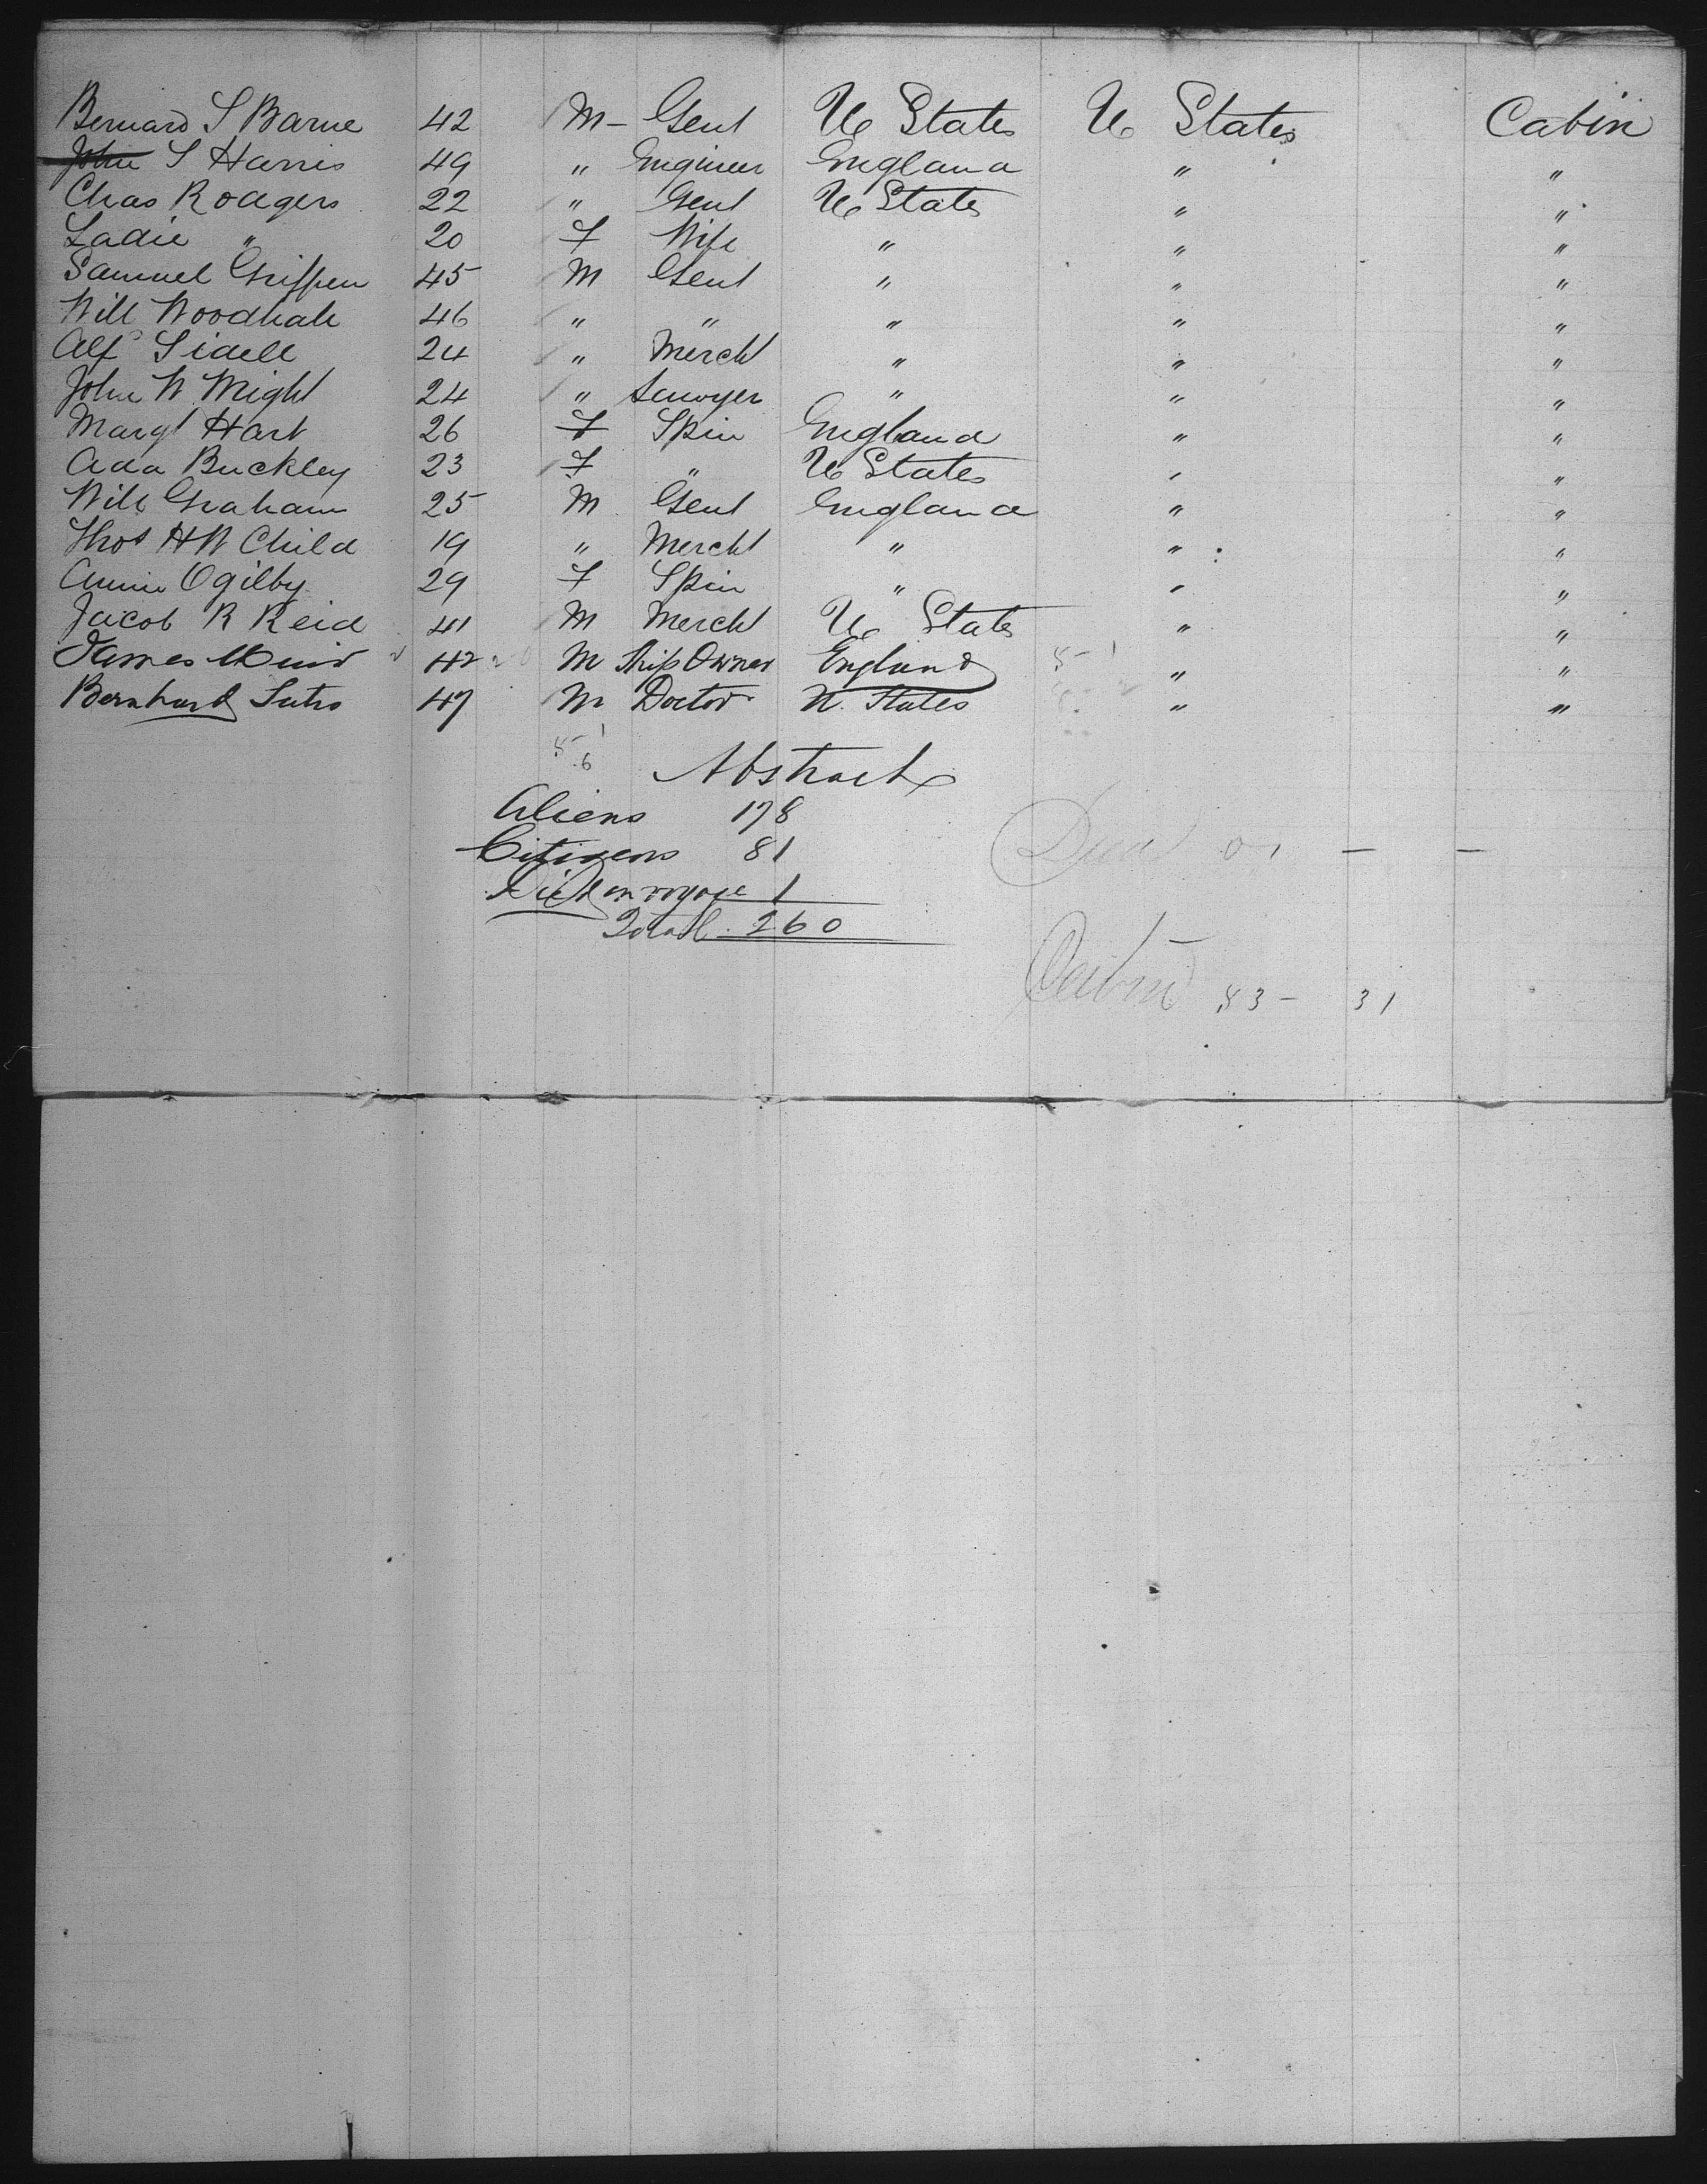 Bernard S Barne 42 M - Gent U States U States Cabin
John S Harris 49 " Engineer England " "
Chas Rodgers 22 " Gent U States " "
Sadie " 20 F Wife " " "
Samuel Griffen 45 M Gent " " "
Will Woodhall 46 " " " " "
Alf Sidell 24 " Mercht " " "
John W Wright 24 " Lawyer " " "
Margt Hart 26 F Spin England " "
Ada Buckley 23 F " U States " "
Will Graham 25 M Gent England " "
Thos H W Child 19 " Mercht " " "
Annie Ogilby 29 F Spin " " "
Jacob R Reid 41 M Mercht U States " "
James Muir 42 M Ship Owner England " "
Bernhard Sutro 47 M Doctor U. States " "
Abstract
Aliens 178
Citizens 81
Died on voyage 1
Total 260
Cabin 83 - 31